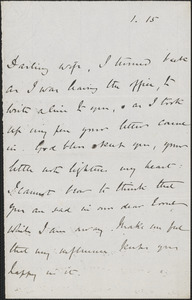 1. 15
Darling wife, I turned back
as I was leaving the office, to
write a line to you, & as I took
up my pen your letter came
in. God bless & keep you, your
letter lightens my heart.
I cannot bear to think that
you are sad in our dear home,
while I am away. Make me feel
that my influence keeps you
happy in it.